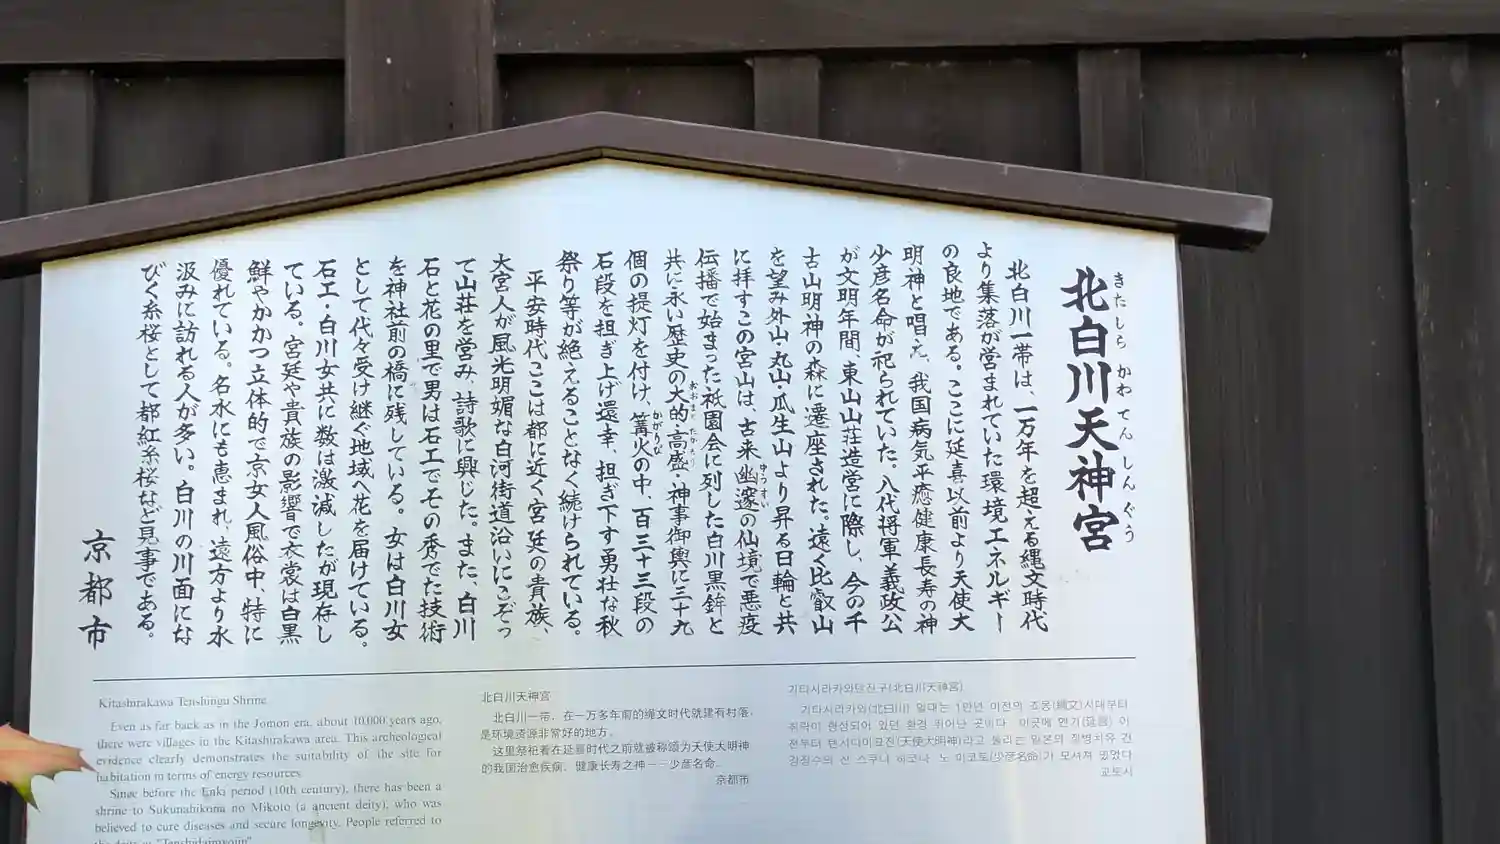 北白川天神宮
きたしらかわてんしんぐう
北白川一帯は、一万年を超える縄文時代
より集落が営まれていた環境エネルギー
の良地である。ここに延喜以前より天使大
明神と唱え、我国病気平癒健康長寿の神
少彦名命が祀られていた。八代将軍義政公
が文明年間、東山山荘造営に際し、今の千
古山明神の森に遷座された。遠く比叡山
を望み外山・丸山・瓜生山より昇る日輪と共
に拝すこの宮山は、古来幽邃の仙境で悪疫
ゆうすい
伝播で始まった祇園会に列した白川黒鉾と
共に永い歴史の大的・高盛・神事御輿に三十九
おおまと たかもり
個の提灯を付け、篝火の中、百三十三段の
かがりび
石段を担ぎ上げ還幸、担ぎ下す勇壮な秋
祭り等が絶えることなく続けられている。
平安時代ここは都に近く宮廷の貴族、
大宮人が風光明媚な白河街道沿いにこぞっ
て山荘を営み、詩歌に興じた。また、白川
石と花の里で男は石工でその秀でた技術
を神社前の橋に残している。女は白川女
として代々受け継ぐ地域へ花を届けている。
石工・白川女共に数は激減したが現存し
ている。宮廷や貴族の影響で衣裳は白黒
鮮やかかつ立体的で京女人風俗中、特に
優れている。名水にも恵まれ、遠方より水
汲みに訪れる人が多い。白川の川面にな
びく糸桜として都紅糸桜など見事である。
京都市
Kitashirakawa Tenshingu Shrine
Even as far back as in the Jomon era, about 10,000 years ago,
there were villages in the Kitashirakawa area. This archeological
evidence clearly demonstrates the suitability of the site for
habitation in terms of energy resources.
Since before the Enki period (10th century), there has been a
shrine to Sukunahikona no Mikoto (a ancient deity), who was
believed to cure diseases and secure longevity. People referred to
the deity as "Tenshidaimyojin"
北白川天神宮
北白川一带，在一万多年前的绳文时代就建有村落，
是环境资源非常好的地方。
这里祭祀着在延喜时代之前就被称颂为天使大明神
的我国治愈疾病、健康长寿之神——少彦名命。
京都市
기타시라카와텐진구(北白川天神宮)
기타시라카와(北白川) 일대는 1만년 이전의 조몽(縄文)시대부터
취락이 형성되어 있던 환경 뛰어난 곳이다. 이곳에 엔기(延喜) 이
전부터 텐시다이묘진(天使大明神)라고 불리는 일본의 질병치유 건
강장수의 신 스쿠나 히코나 노 미코토(少彦名命)가 모셔져 있었다
교토시